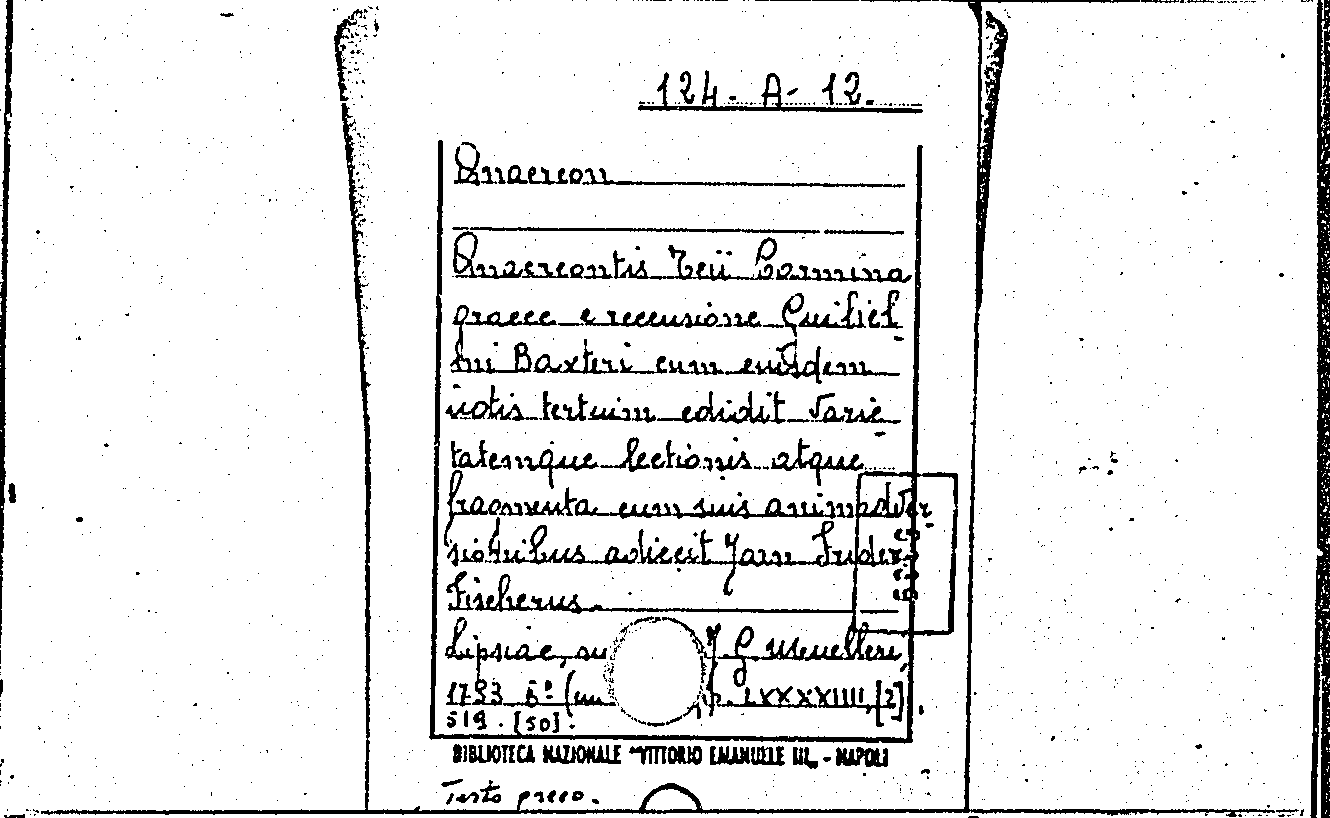 124-A-12.
Anacreon
Anacreontis Teii Carmina
graece e recensione Guiliel
mi Baxteri cum eiusdem
notis tertium edidit varie
tatemque lectionis atque
fragmenta cum suis animadver
sionibus adiecit Joan Frider.
Fischerus.
Lipsiae, su J. G. Muelleri,
1793 8° (un p. LXXXXIIII, [2]
519. [50].
BIBLIOTECA NAZIONALE "VITTORIO EMANUELE III" - NAPOLI
Testo greco.